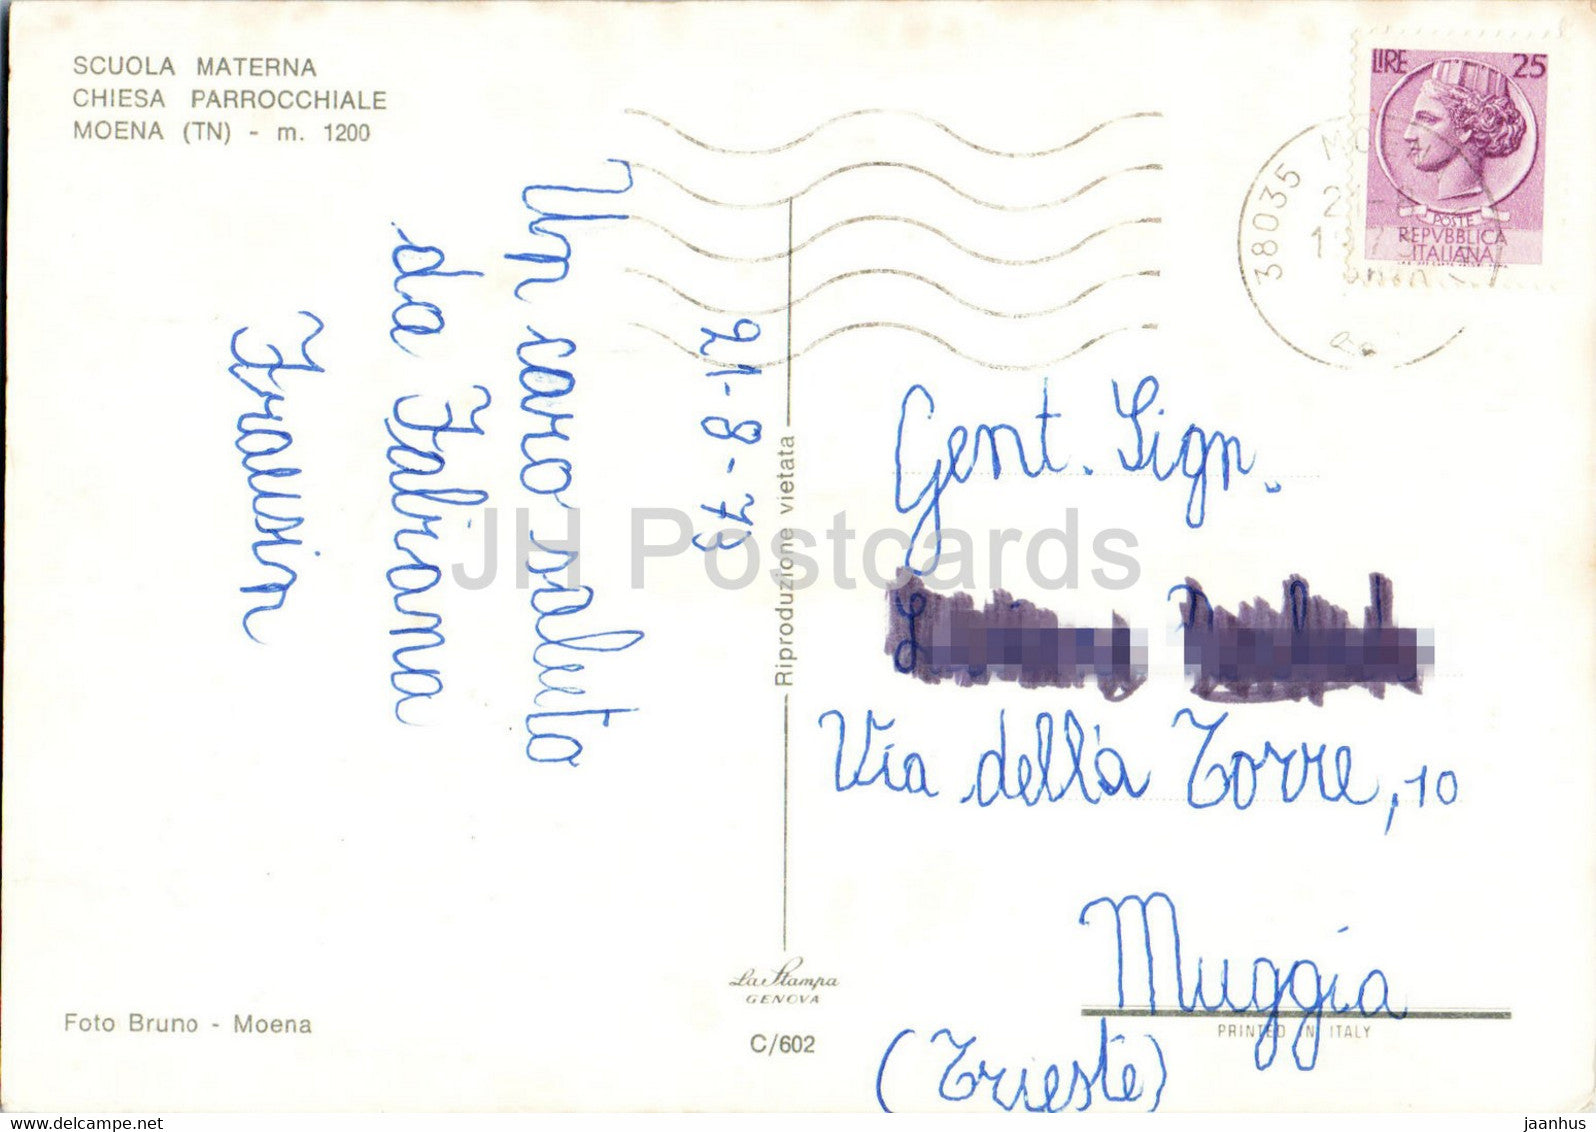 SCUOLA MATERNA
CHIESA PARROCCHIALE
MOENA (TN) - m. 1200
LIRE 25
POSTE
REPVBBLICA
ITALIANA
38035
21-8-73
Un caro saluto
da Fabiana
Frausin
Riproduzione vietata
Gent. Sign.
Via della Torre, 10
Muggia
(Trieste)
La Stampa
GENOVA
C/602
Foto Bruno - Moena
PRINTED IN ITALY
JH Postcards
www.delcampe.net
jaanhus